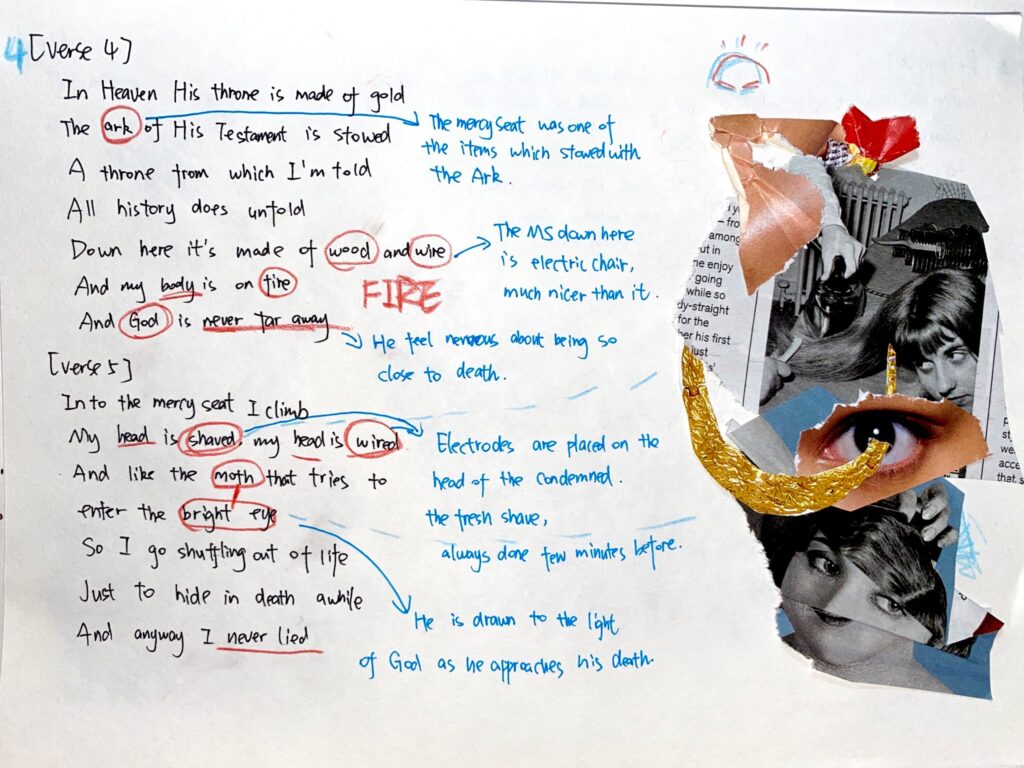 4 [Verse 4]
In Heaven His throne is made of gold
The ark of His Testament is stowed
A throne from which I'm told
All history does unfold
Down here it's made of wood and wire
And my body is on fire
FIRE
And God is never far away
The mercy seat was one of
the items which stowed with
the Ark.
The MS down here
is electric chair,
much nicer than it.
He feel nervous about being so
close to death.
[Verse 5]
Into the mercy seat I climb
My head is shaved, my head is wired
And like the moth that tries to
enter the bright eye
So I go shuffling out of life
Just to hide in death awhile
And anyway I never lied
Electrodes are placed on the
head of the condemned.
the fresh shave,
always done few minutes before.
He is drawn to the light
of God as he approaches his death.
– fro
among
out in
ne enjoy
going
while so
dy-straight
for the
her his first
just
s'
p
sty
we
acce
that s